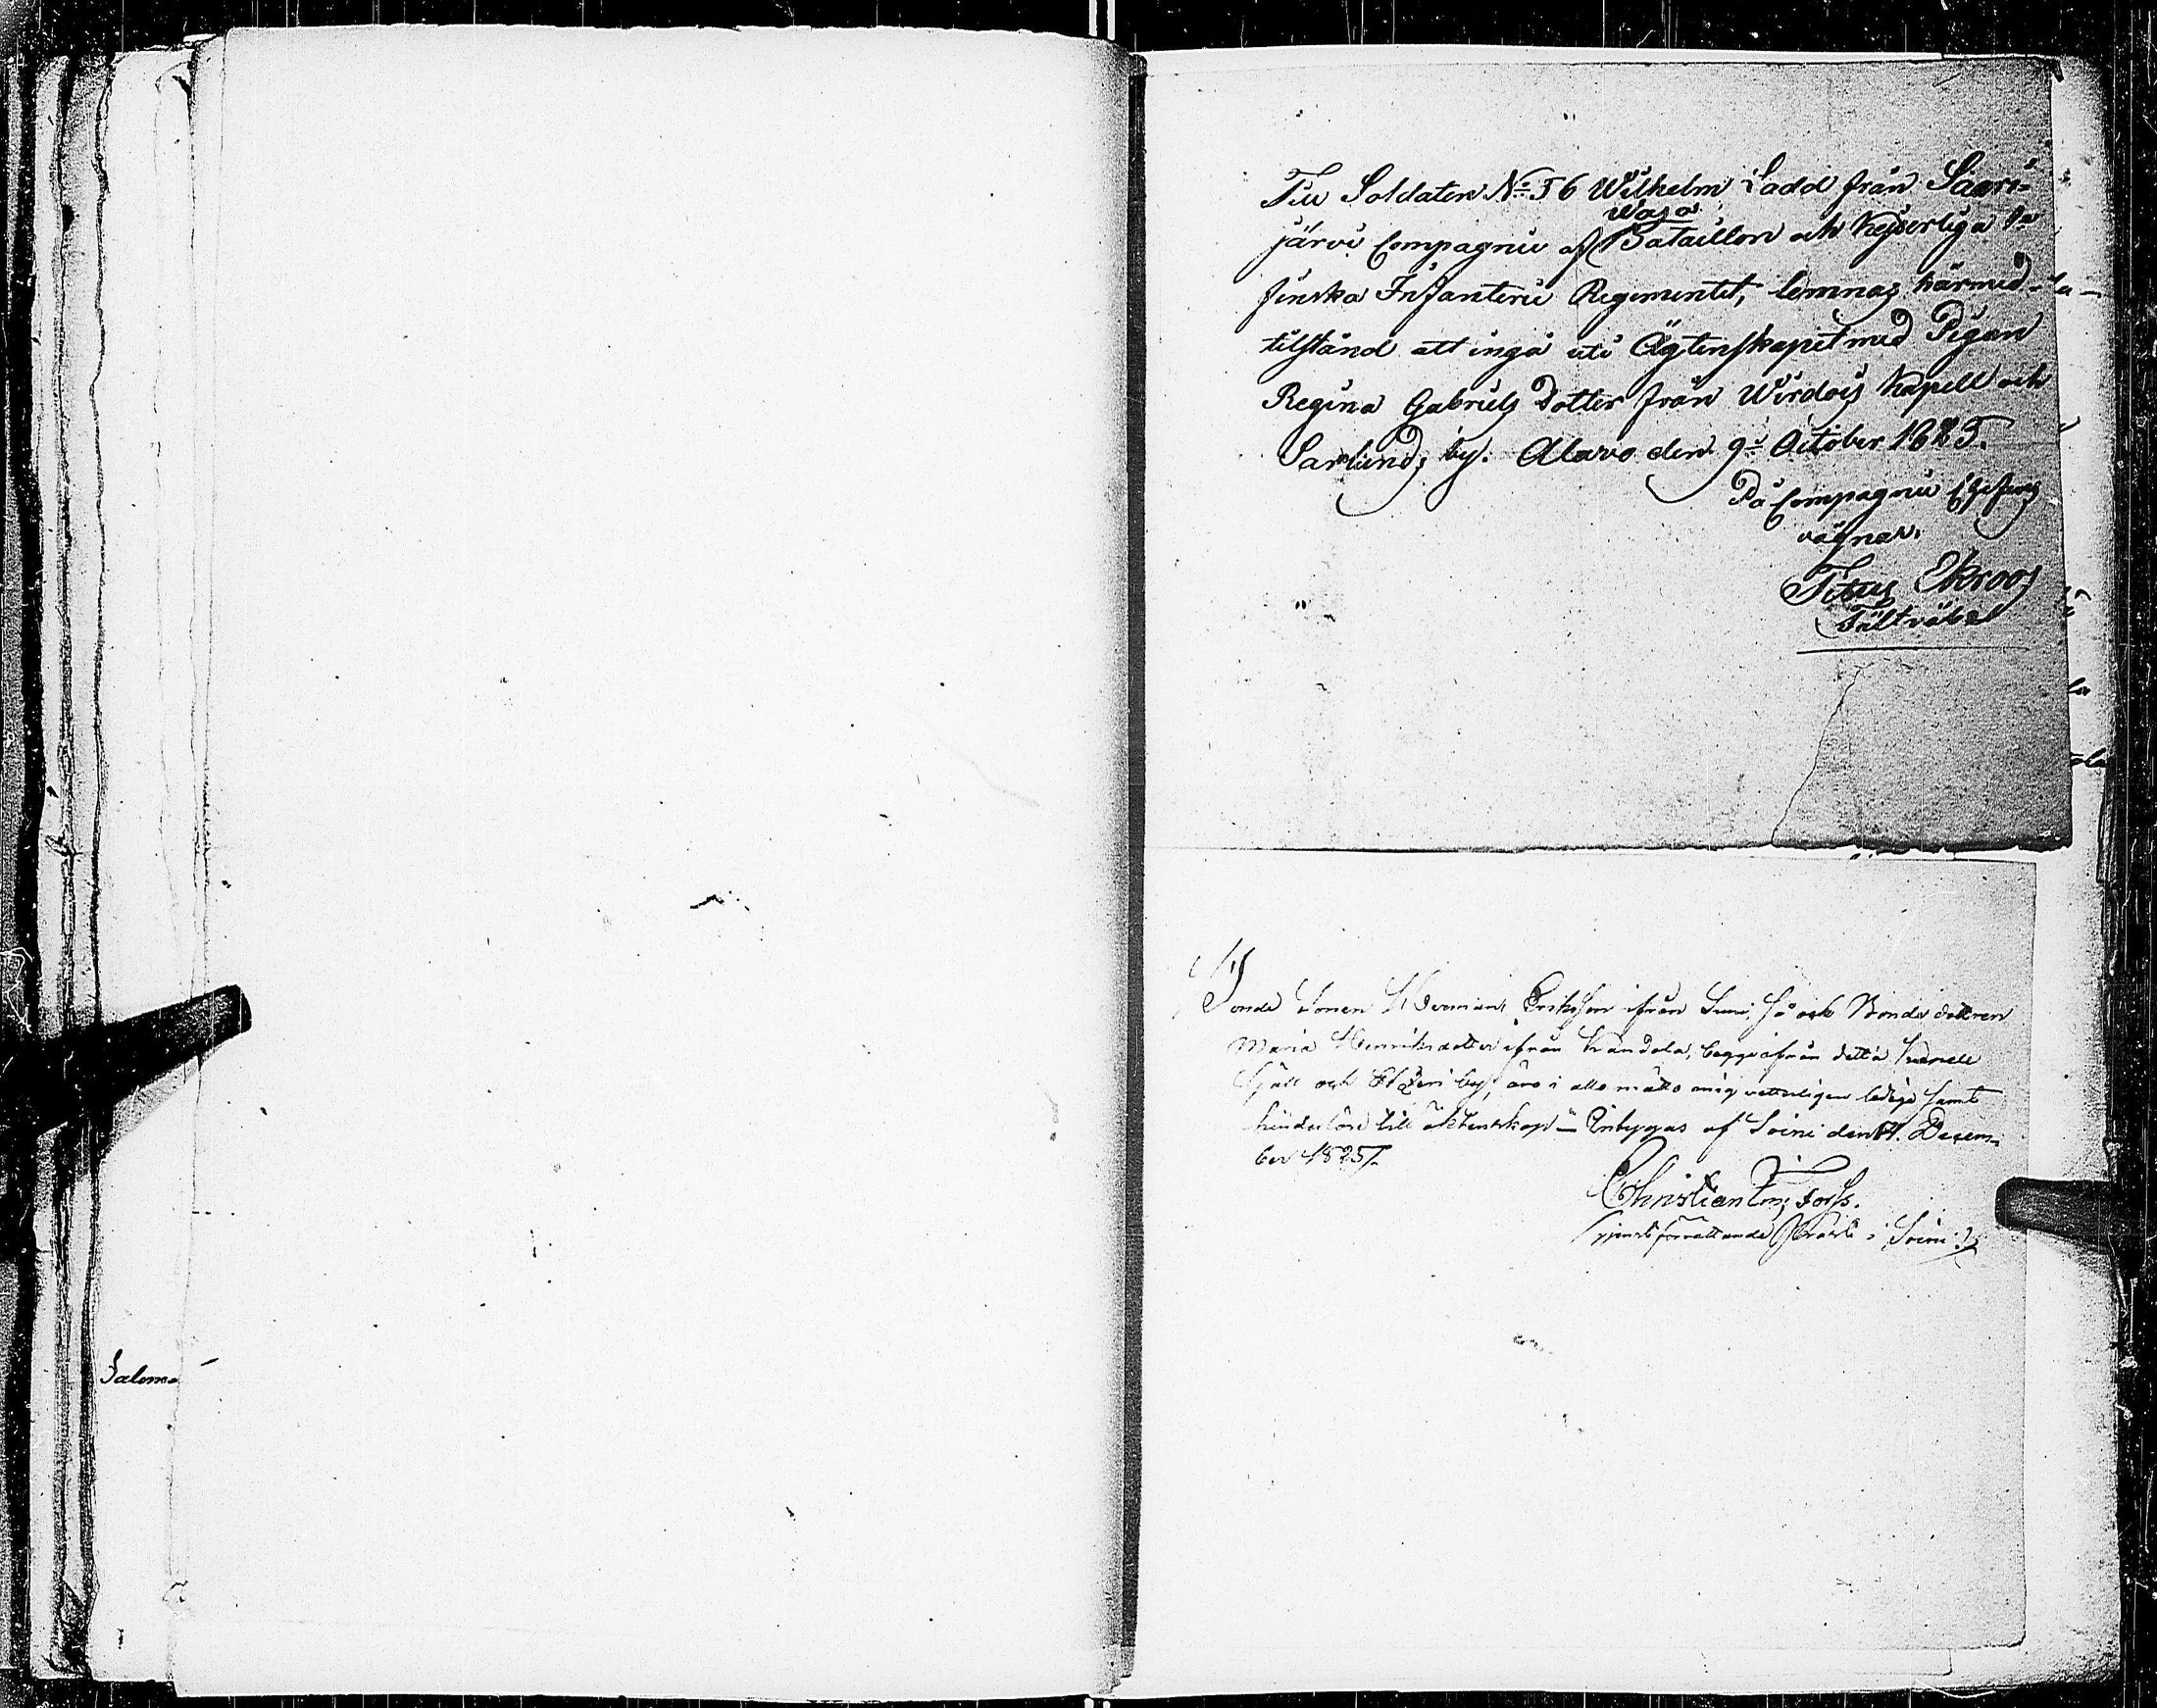 Salom-
Till Soldaten No. 56 Wilhelm Ladd från Saari-
järvi Compagnie af Wasa Bataillon och Kejserliga
finska Infanterie Regimentet, lemnas härmed
tilstånd att ingå uti Ägtenskapet med Pigan
Regina Gabriels Dotter från Wirdois Kapell och
by. Alavo den 9de October 1825.
På Compagnie Chefens
vägnar.
Titus Ekroos
Fältväbel
Bonde Sonen Herman Eriksson ifrån och Bonde dottren
Maria Henriksdotter ifrån begge ifrån detta
och by, äro i allo måtto mig vetterligen ledige samt
hinderlöse till äktenskap - intygas af Soini den Decem-
ber 1825/.
Christian
tjenstförrättande i Soini